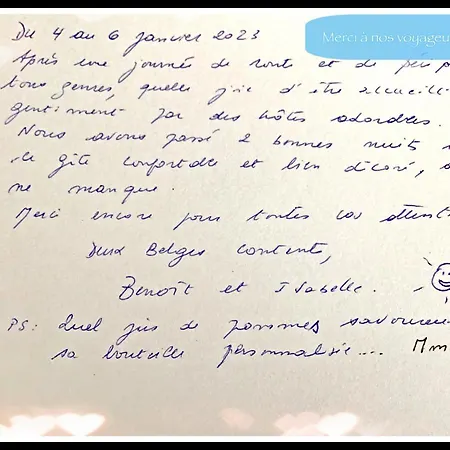 Du 4 au 6 janvier 2023
Merci à nos voyageu
Après une journée de route et de périp
tous genres, quelle joie d'être accueill
gentiment par des hôtes adorables.
Nous avons passé 2 bonnes nuits
ce gîte confortable et bien décoré,
ne manque.
Merci encore pour toutes vos attent
Deux Belges contents,
Benoît et Isabelle.
PS: Quel jus de pommes savoureu
sa bouteille personnalisée.... Mm